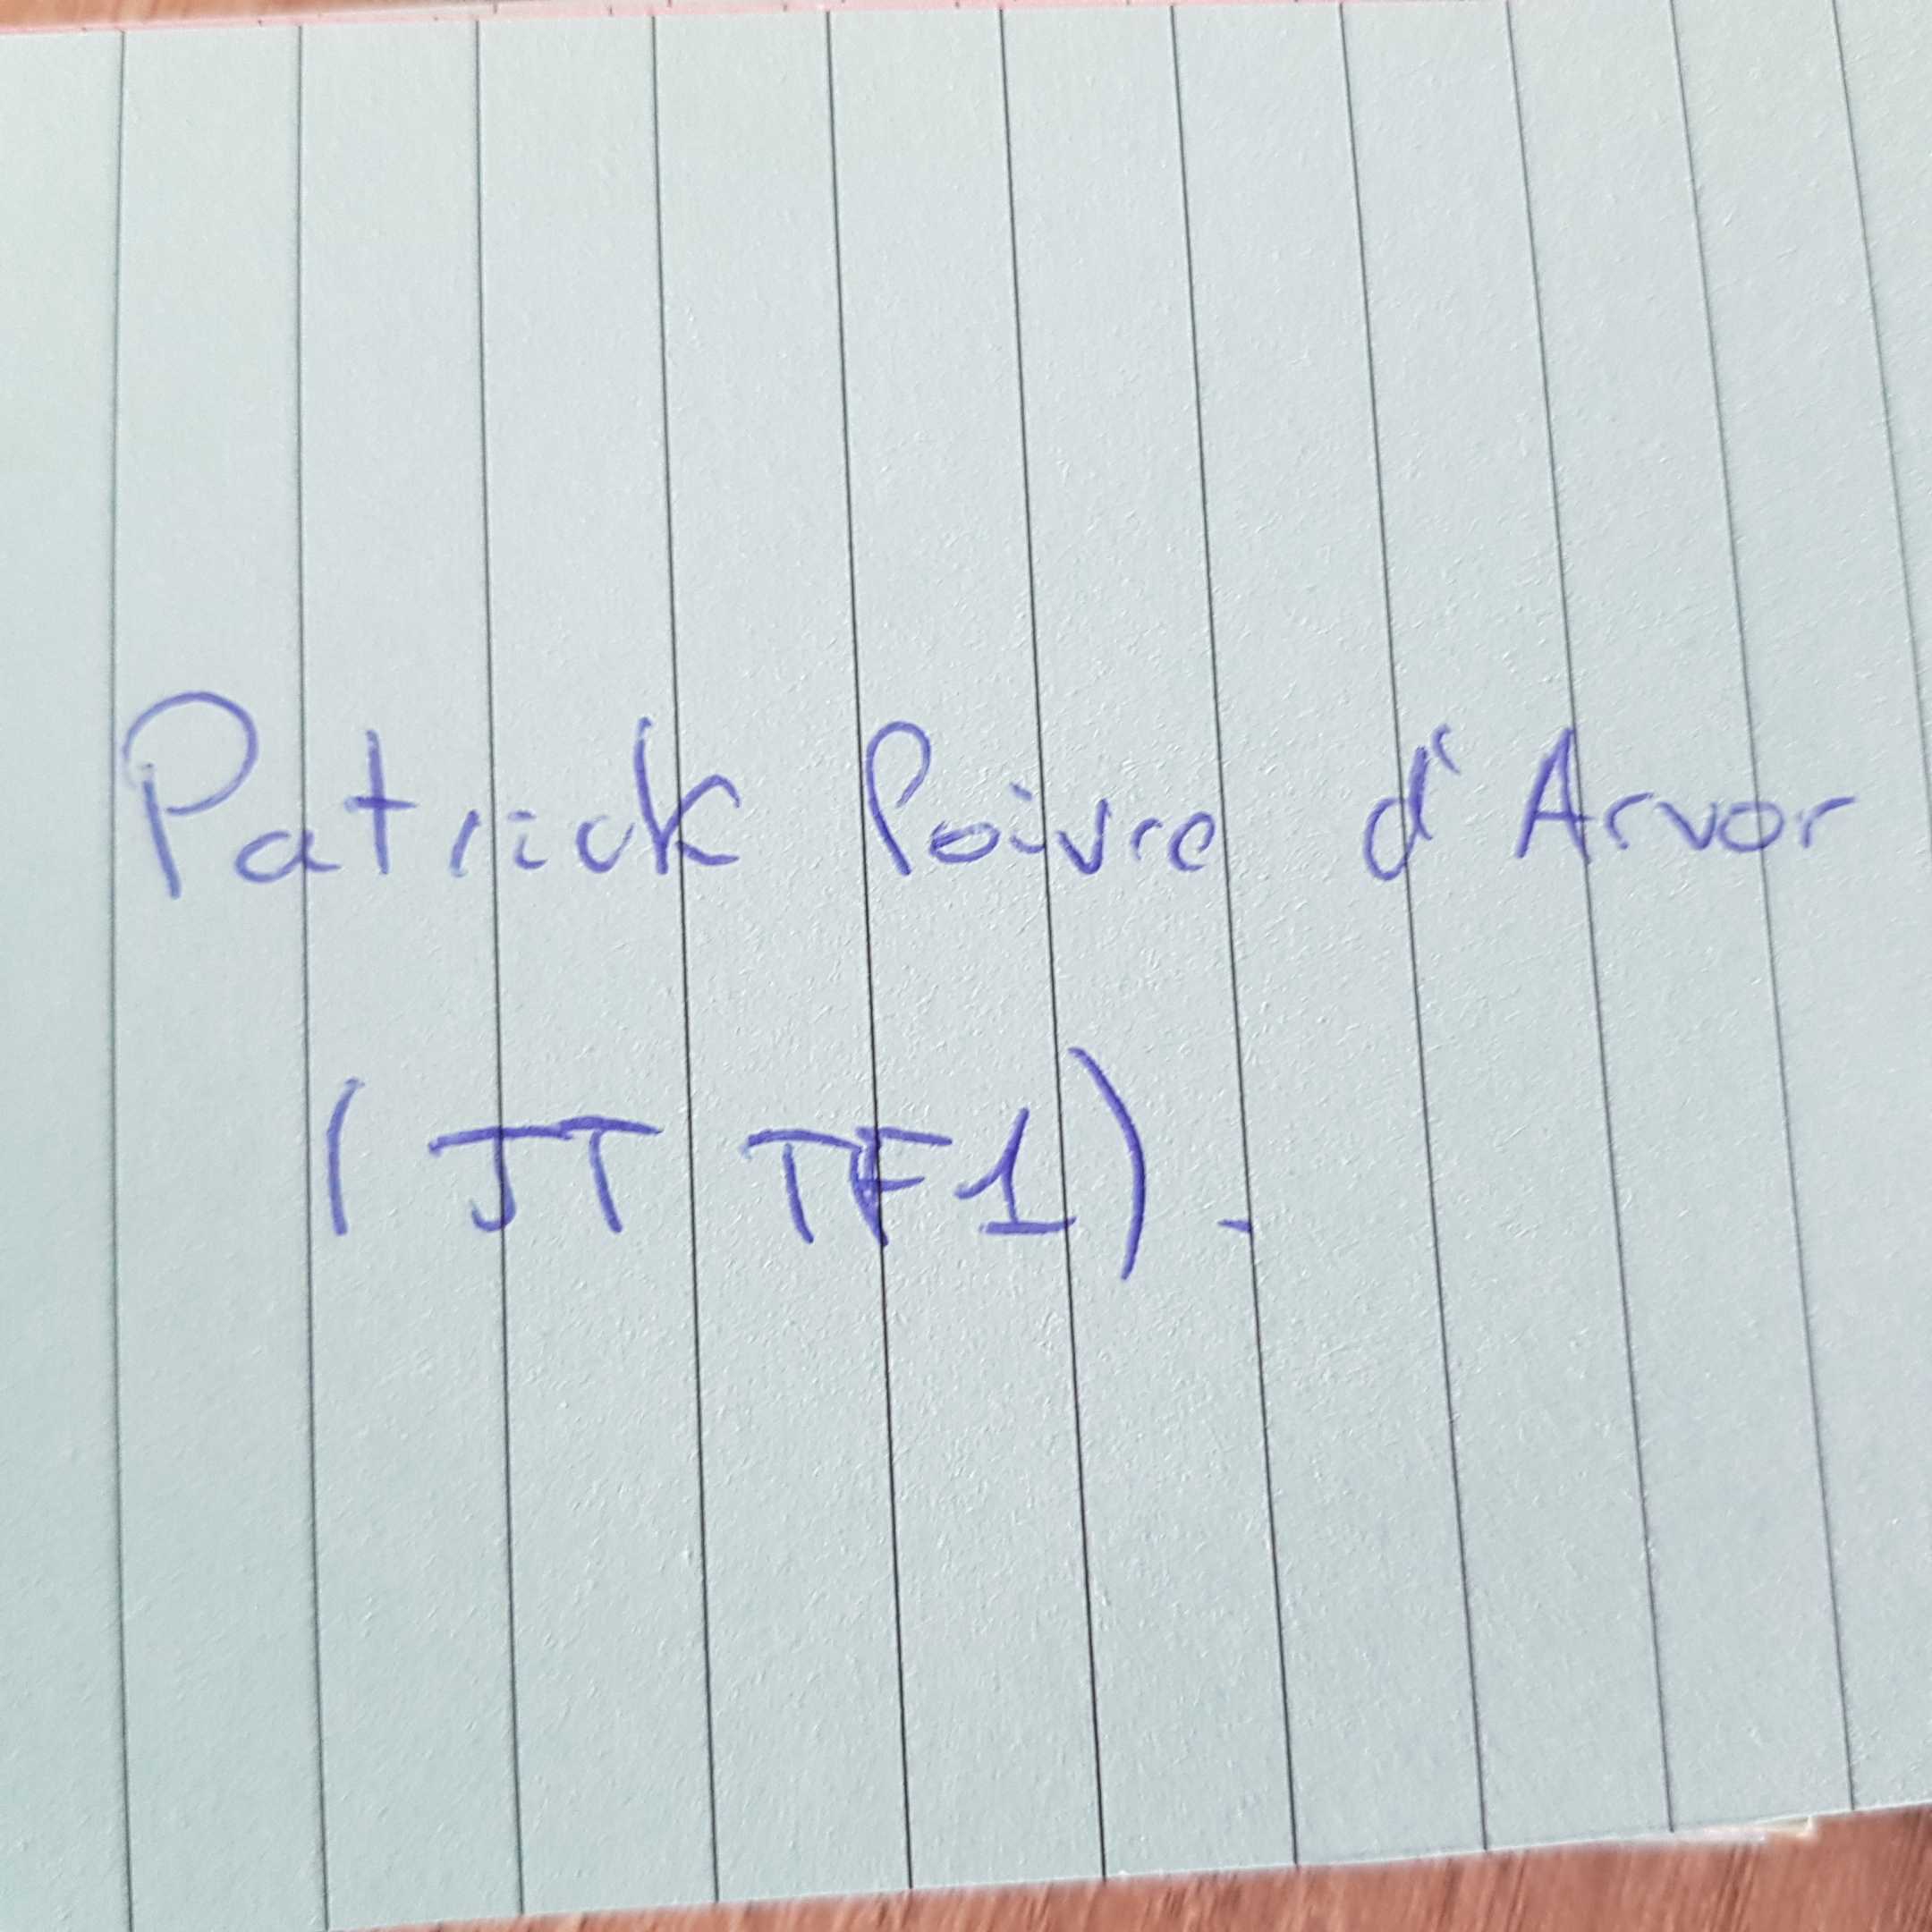 Patrick Poivre d'Arvor
(JT TF1).